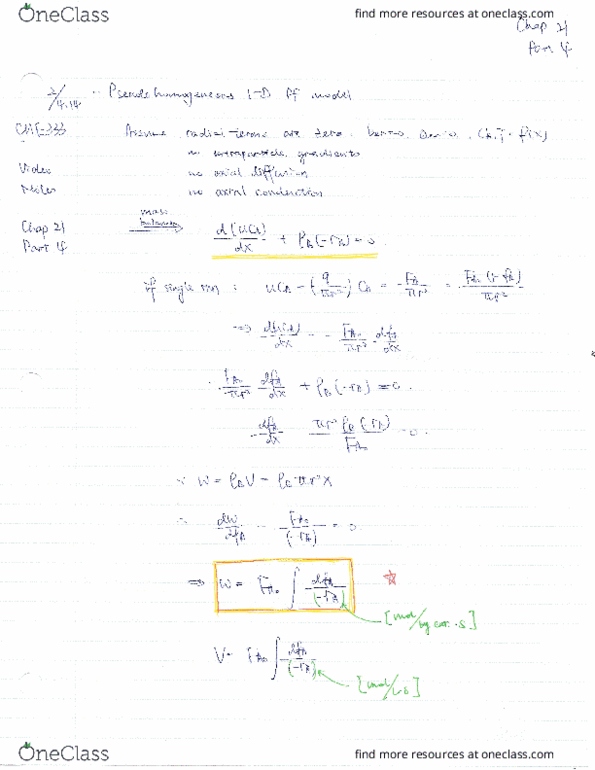 OneClass
find more resources at oneclass.com
Chap 21
Part 4
2/4.14 Pseudohomogeneous 1-D PF model
Assume radial terms are zero.
no intraparticle gradients
Video no axial diffusion
Notes no axial conduction
Chap 21
Part 4 mass balance d(uCA)/dx + ρB(-rA) = 0
if single rxn : uCA = (q/πr²) CA = FA/πr² = FA0(1-fA)/πr²
⇒ d(uCA)/dx = - FA0/πr² dfA/dx
∴ - FA0/πr² dfA/dx + ρB(-rA) = 0.
dfA/dx - πr² ρB(-rA)/FA0 = 0.
∵ W = ρB V = ρB πr² x
∴ dW/dfA - FA0/(-rA) = 0
⇒ W = FA0 ∫ dfA/(-rA)
[mol/kg cat. s]
V = FA0 ∫ dfA/(-rA)
[mol/L s]
OneClass
find more resources at oneclass.com